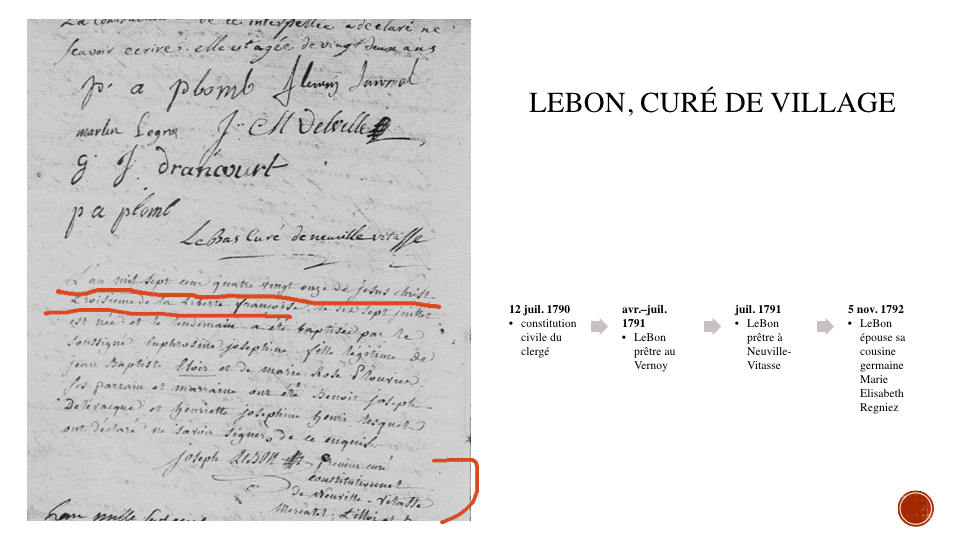 La de ce interpellee a declaré ne
scavoir ecrire : elle est agée de vingt deux ans
p. a plomb fleury
martin Legros J. M Delville
g J. Drancourt
p a plomb
LeBas Curé de neuville vitasse
L'an mil sept cent quatre vingt onze de jesus christ
troisieme de la Liberté françoise, le dix sept juillet
est née et le lendemain a été baptisée par le
soussigné Euphrosine josephine fille légitime de
jean Baptiste et de marie Rose
ses parrain et marraine ont été Benoit joseph
Delevacque et henriette josephine henri
ont déclaré ne savoir signer, de ce enquis.
joseph LeBon premier curé
constitutionnel
de Neuville - vitasse
Mercatel,
L'an mille sept cent
LEBON, CURÉ DE VILLAGE
12 juil. 1790
• constitution
civile du
clergé
avr.–juil.
1791
• LeBon
prêtre au
Vernoy
juil. 1791
• LeBon
prêtre à
Neuville-
Vitasse
5 nov. 1792
• LeBon
épouse sa
cousine
germaine
Marie
Elisabeth
Regniez